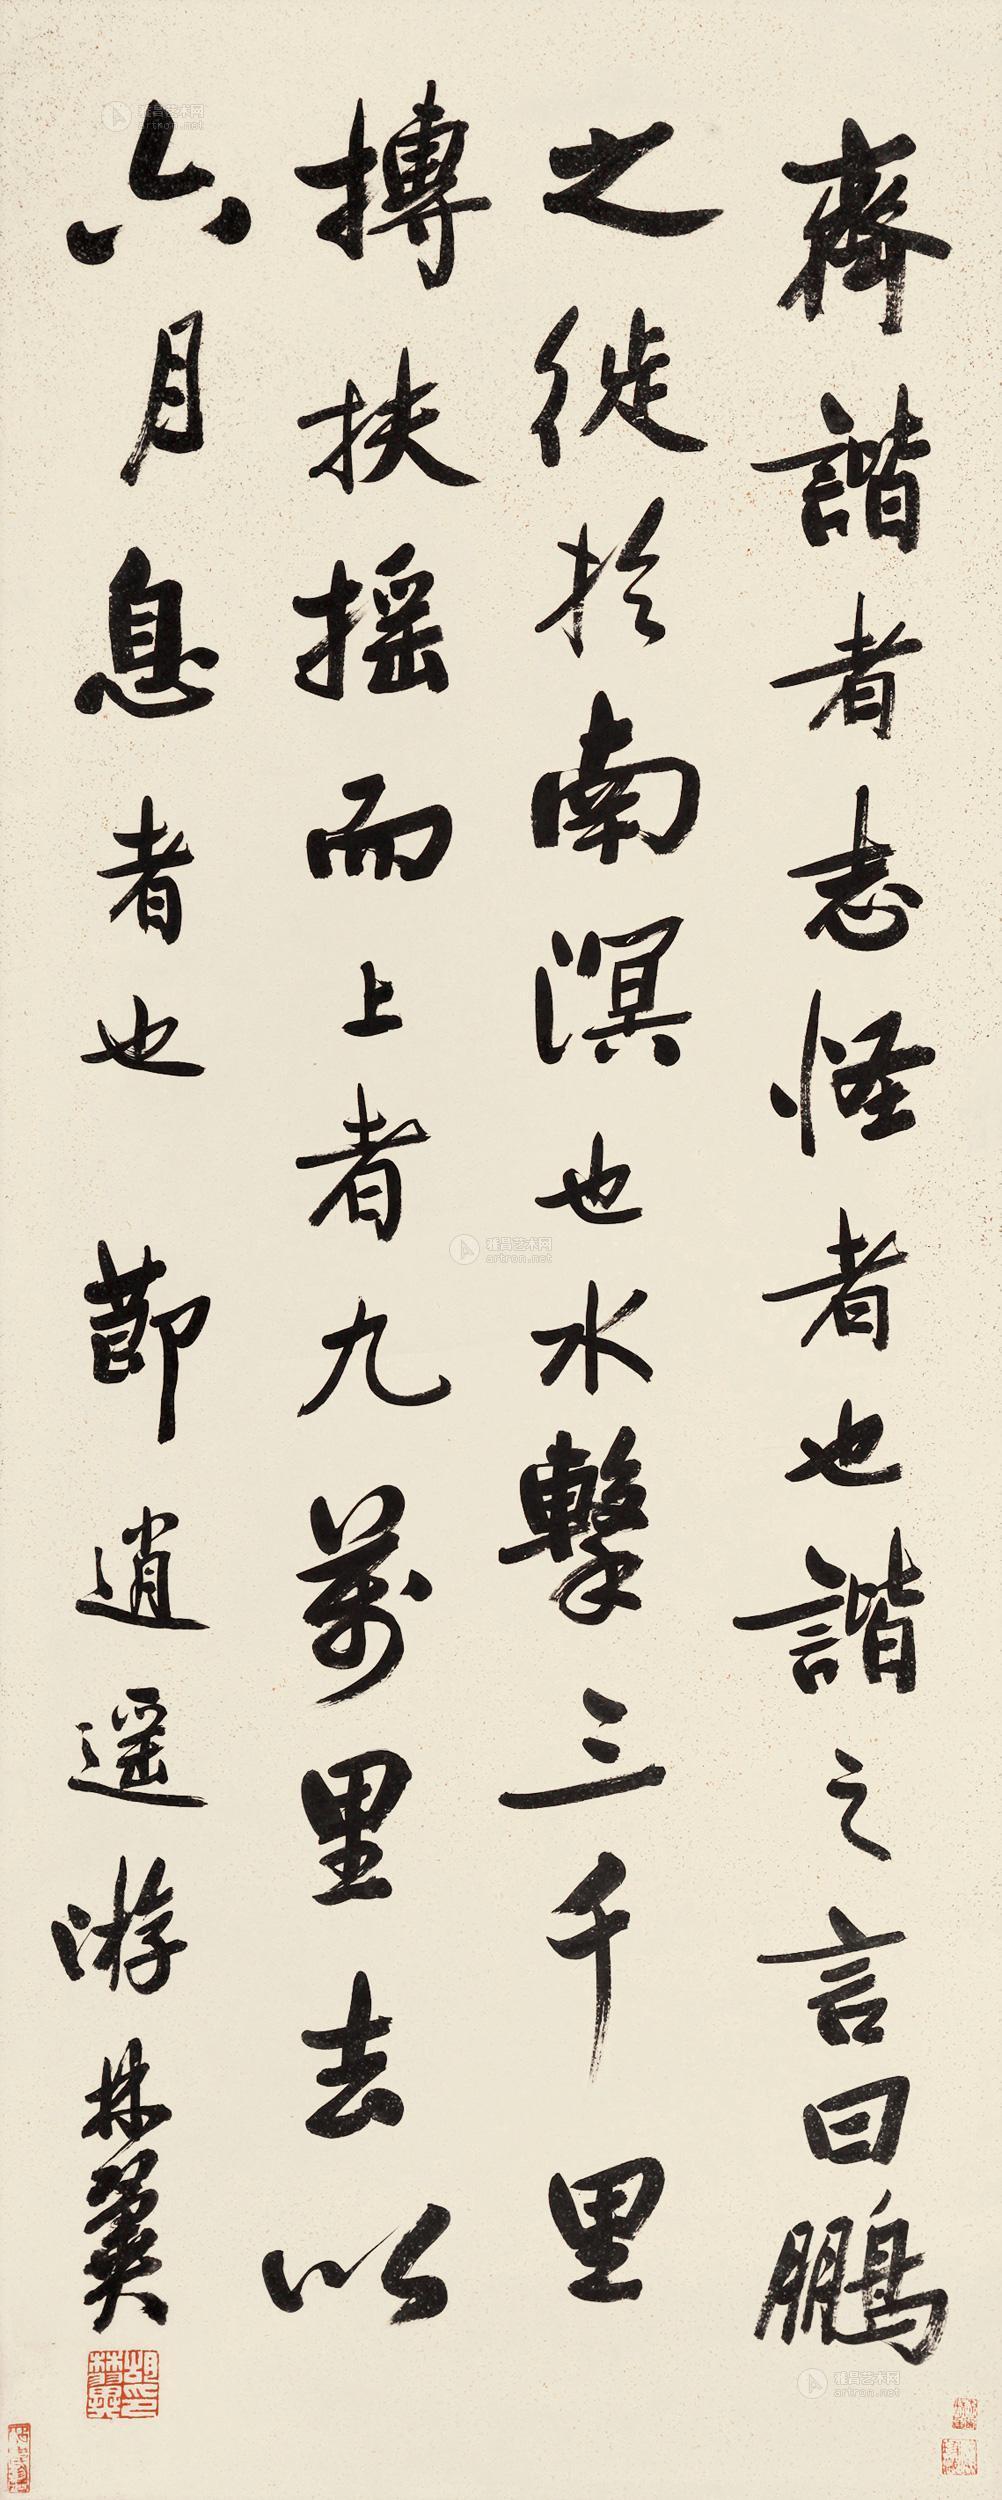 齊諧者志怪者也諧之言曰鵬
之徙於南溟也水擊三千里
摶扶搖而上者九萬里去以
六月息者也節逍遥游林翼
胡林翼印
雅昌艺术网
artron.net
雅昌艺术网
artron.net
雅昌艺术网
artron.net